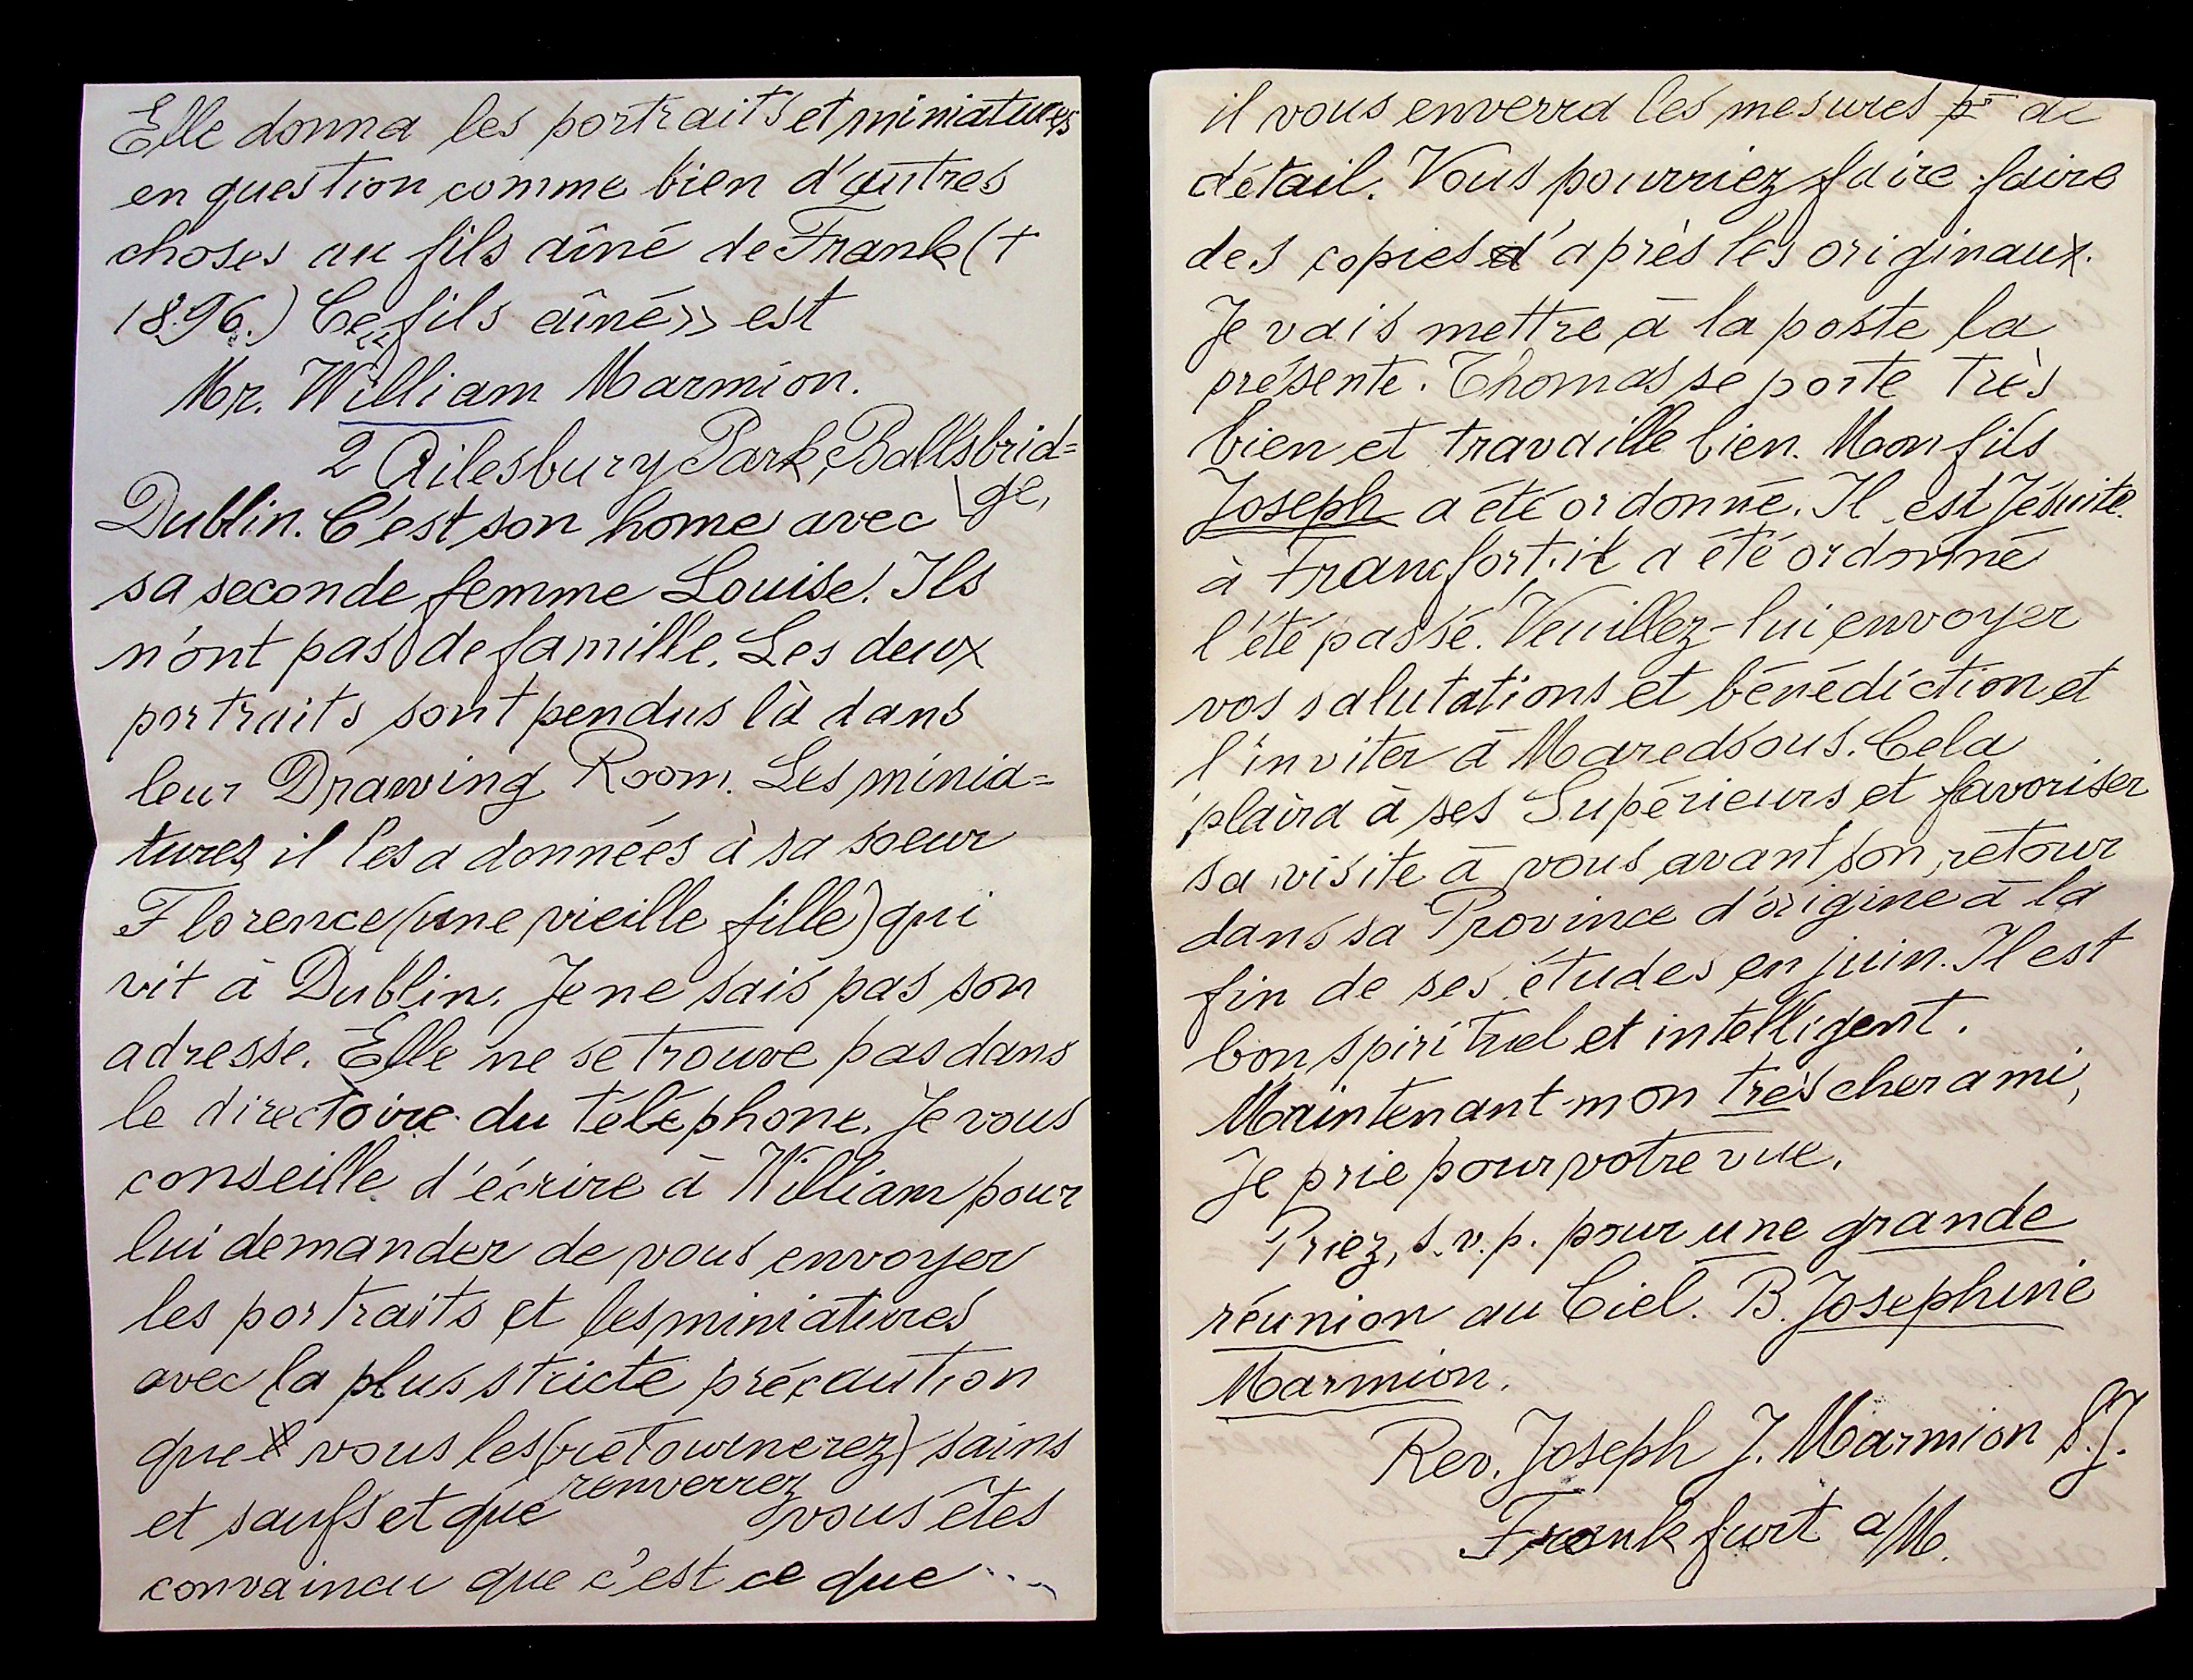 Elle donna les portraits et miniatures
en question comme bien d'autres
choses au fils aîné de Frank (†
1896.) Ce «fils aîné» est
Mr. William Marmion.
2 Ailesbury Park, Ballsbrid=
ge,
Dublin. C'est son home avec
sa seconde femme Louise. Ils
n'ont pas de famille. Les deux
portraits sont pendus là dans
leur Drawing Room. Les minia=
tures, il les a données à sa soeur
Florence (une vieille fille) qui
vit à Dublin. Je ne sais pas son
adresse. Elle ne se trouve pas dans
le directoire du téléphone. Je vous
conseille d'écrire à William pour
lui demander de vous envoyer
les portraits et les miniatures
avec la plus stricte précaution
que vous les (retournerez) sains
renverrez
et saufs et que vous êtes
convaincu que c'est ce que ...
il vous enverra les mesures pr de
détail. Vous pourriez faire faire
des copies d'après les originaux.
Je vais mettre à la poste la
présente. Thomas se porte très
bien et travaille bien. Mon fils
Joseph a été ordonné. Il est Jésuite
à Francfort. il a été ordonné
l'été passé. Veuillez-lui envoyer
vos salutations et bénédiction et
l'inviter à Maredsous. Cela
plaira à ses Supérieurs et favoriser
sa visite à vous avant son retour
dans sa Province d'origine à la
fin de ses études en juin. Il est
bon spirituel et intelligent.
Maintenant mon très cher ami,
Je prie pour votre vue.
Priez, s.v.p. pour une grande
réunion au Ciel. B. Josephine
Marmion.
Rev. Joseph J. Marmion S.J.
Frankfurt a/M.